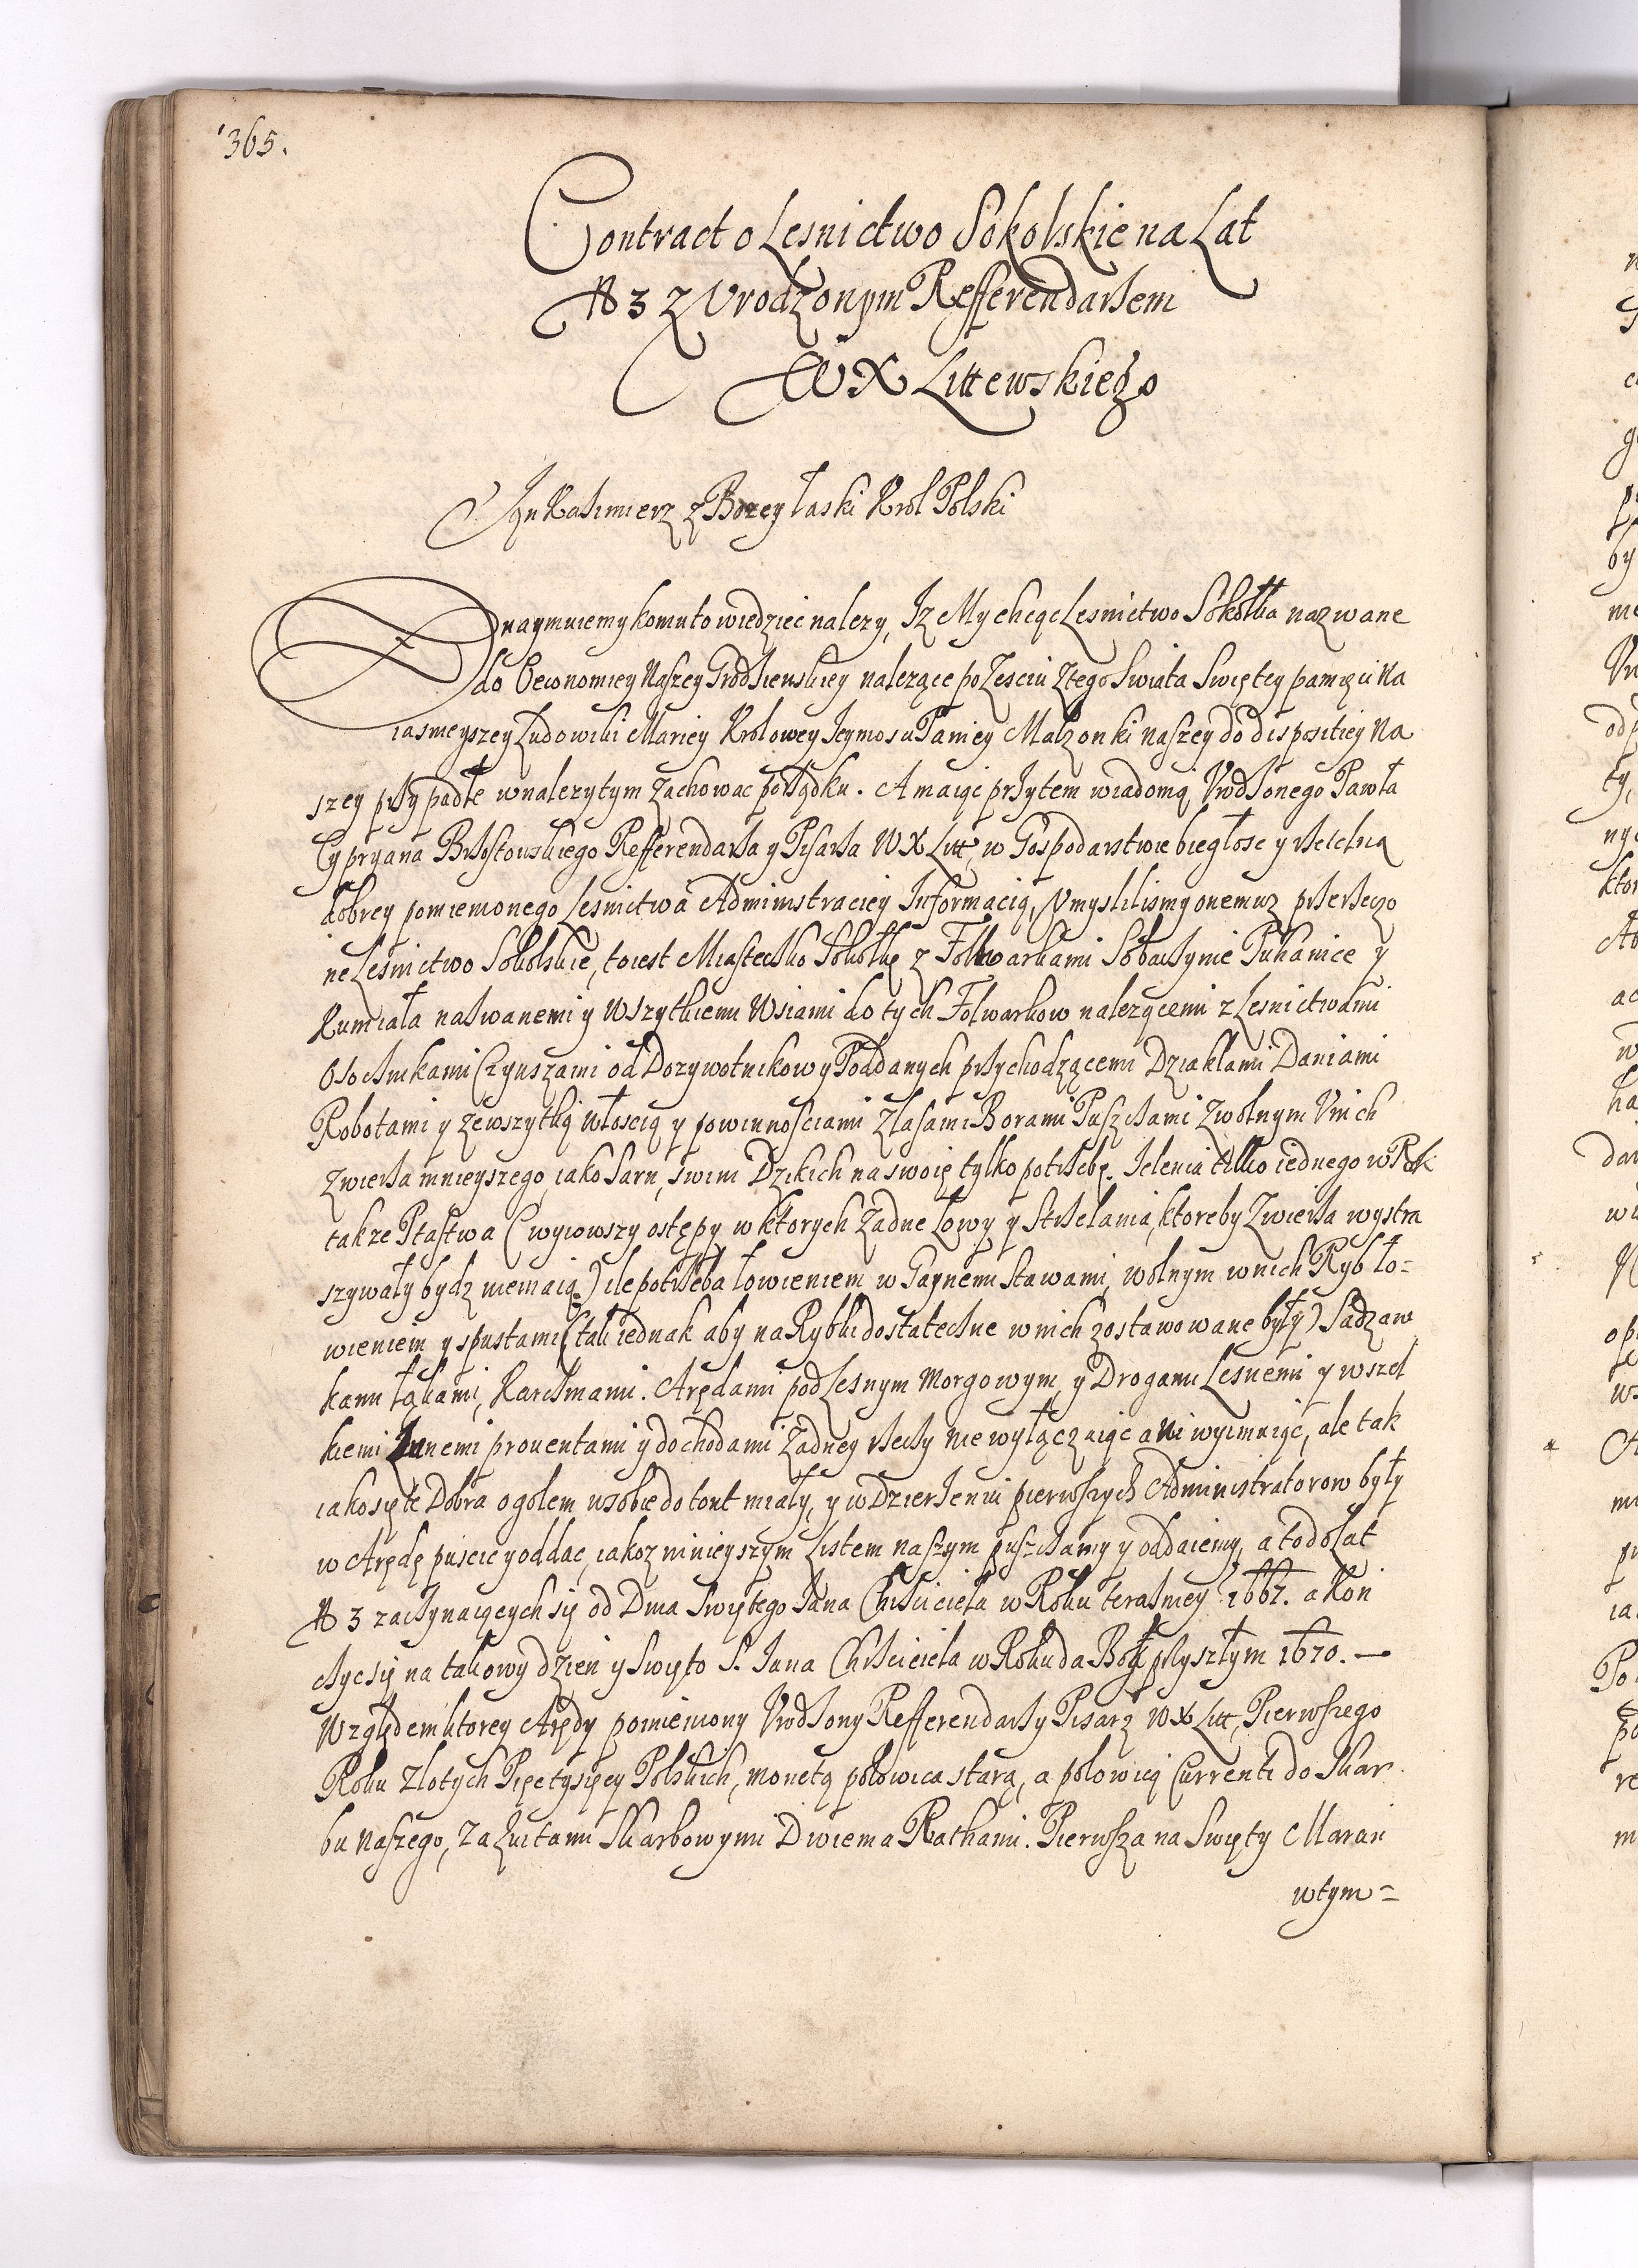 365.
Contract o Lesnictwo Sokolskie na Lat
No 3 z Vrodzonym Refferendarzem
W X Littewskiego
Jan Kazimierz z Bozey łaski Krol Polski
Oznaymuiemy komu to wiedziec nalezy, Iz My chcąc Lesnictwo Sokołka nazwane
do Oeconomiey Naszey Grodzienskiey nalezące po Zesciu z tego Swiata Swiętey pamięci Na
iasnieyszey Ludowiki Mariey Krolowey Ieymosci Paniey Małzonki naszey do dispositiey Na
szey przypadłe w nalezytym zachowac porządku. A maiąc przytem wiadomą Vrodzonego Pawła
Cypryana Brzostowskiego Refferendarza y Pisarza W X Litt, w Gospodarstwie biegłosc y rzetelną
dobrey pomienionego Lesnictwa Administraciey Informacią, Vmyslilismy onemuz przerzeczo
ne Lesnictwo Sokolskie, to iest Miasteczko Sokołkę z Folwarkami Sobaczynie Pukanice y
Kumiała nazwanemi y Wszytkiemi Wsiami do tych Folwarkow nalezącemi z Lesnictwami
Osocznikami Czynszami od Dozywotnikow y Poddanych przychodzącemi Dziakłami Daniami
Robotami y ze wszytką włoscią y powinnosciami z lasami Borami Puszczami z wolnym V nich
zwierza mnieyszego, iako Sarn, swini Dzikich na swoię tylko potrzebę. Ielenia tylko iednego w Rok
takze Ptastwa (wyiowszy ostępy w ktorych zadne Łowy y Strzelania, ktoreby Zwierza wystra
szywały bydz niemaią) ile potrzeba łowieniem w Gaynemi Stawami, wolnym w nich Ryb ło=
wieniem y spustami (tak iednak aby na Rybki dostateczne w nich zostawowane były) Sadzaw
kami łąkami, Karczmami. Arędami podlesnym Morgowym, y Drogami Lesnemi y wszel
kiemi Innemi prouentami y dochodami zadney rzeczy nie wyłączaiąc ani wyimuiąc, ale tak
iako się te Dobra ogołem w sobie dotont miały, y w Dzierzeniu pierwszych Administratorow były
w Arędę puscic y oddac, iakoz ninieyszym Listem naszym puszczamy y oddaiemy, a to do Lat
No 3 zaczynaiących się od Dnia Swiętego Iana Chrzciciela w Roku terazniey: 1667. a Kon
czyc się na takowy dzien y Swięto S. Iana Chrzciciela w Roku da Bog przyszłym 1670. —
Względem ktorey Arędy pomieniony Vrodzony Refferendarz y Pisarz W X Litt, Pierwszego
Roku Złotych Pięc tysięcy Polskich, monetą połowica starą, a połowicą Currenti do Skar
bu Naszego, za kwitami Skarbowymi Dwiema Rathami. Pierwsza na Swięty Marcin
w tym=